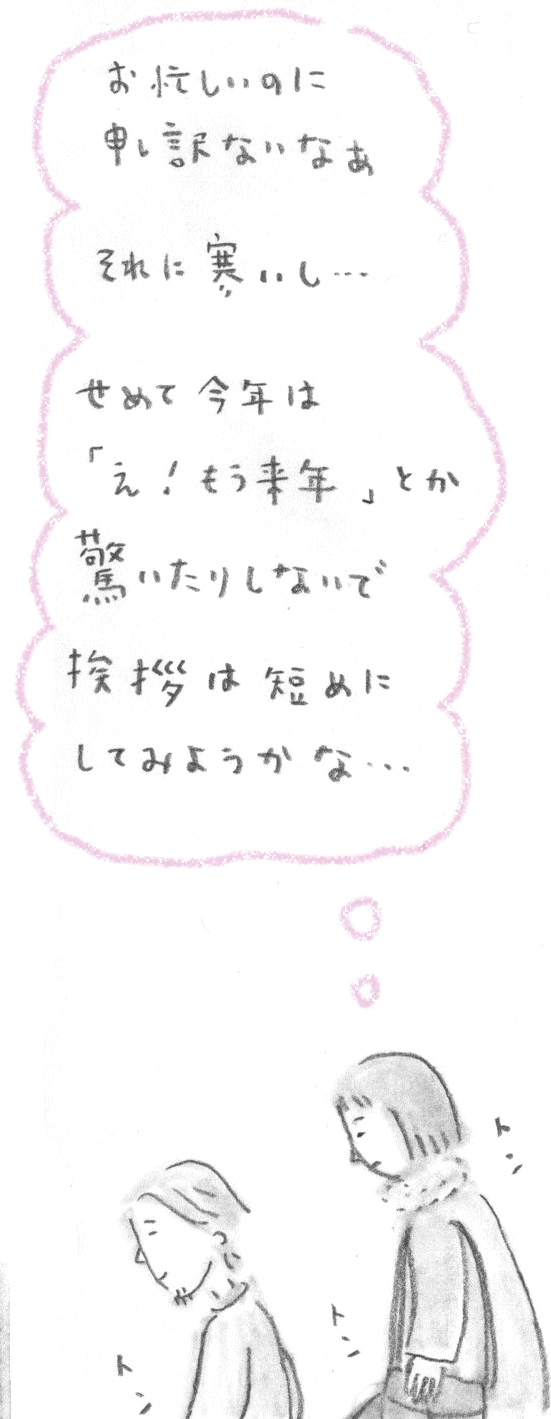 お忙しいのに
申し訳ないなぁ
それに寒いし…
せめて今年は
「え！もう来年」とか
驚いたりしないで
挨拶は短めに
してみようかな…
トン
トン
トン